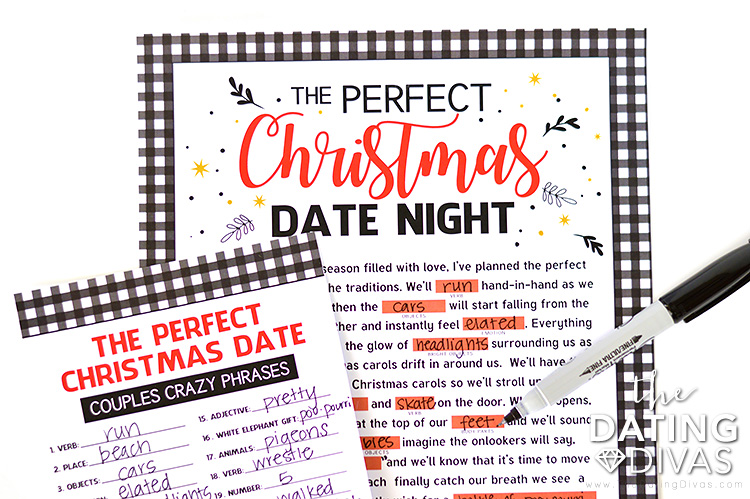 THE PERFECT
Christmas
DATE NIGHT
season filled with love, I've planned the perfect
he traditions. We'll run hand-in-hand as we
VERB
then the cars will start falling from the
OBJECTS
ther and instantly feel elated. Everything
EMOTION
the glow of headlights surrounding us as
BRIGHT OBJECTS
as carols drift in around us. We'll have
Christmas carols so we'll stroll
and skate on the door. opens,
VERB
at the top of our feet. and we'll sound
BODY PARTS
imagine the onlookers will say,
OBJECTS
"and we'll know that it's time to move
each finally catch our breath we see a
THE PERFECT
CHRISTMAS DATE
COUPLES CRAZY PHRASES
1. VERB: run
2. PLACE: beach
3. OBJECTS: cars
elated
15. ADJECTIVE: pretty
16. WHITE ELEPHANT GIFT: poo-pourri
17. ANIMALS: pigeons
18. VERB: wrestle
19. NUMBER: 5
walked
FINE/ULTRA FINE
the
DATING
DIVAS